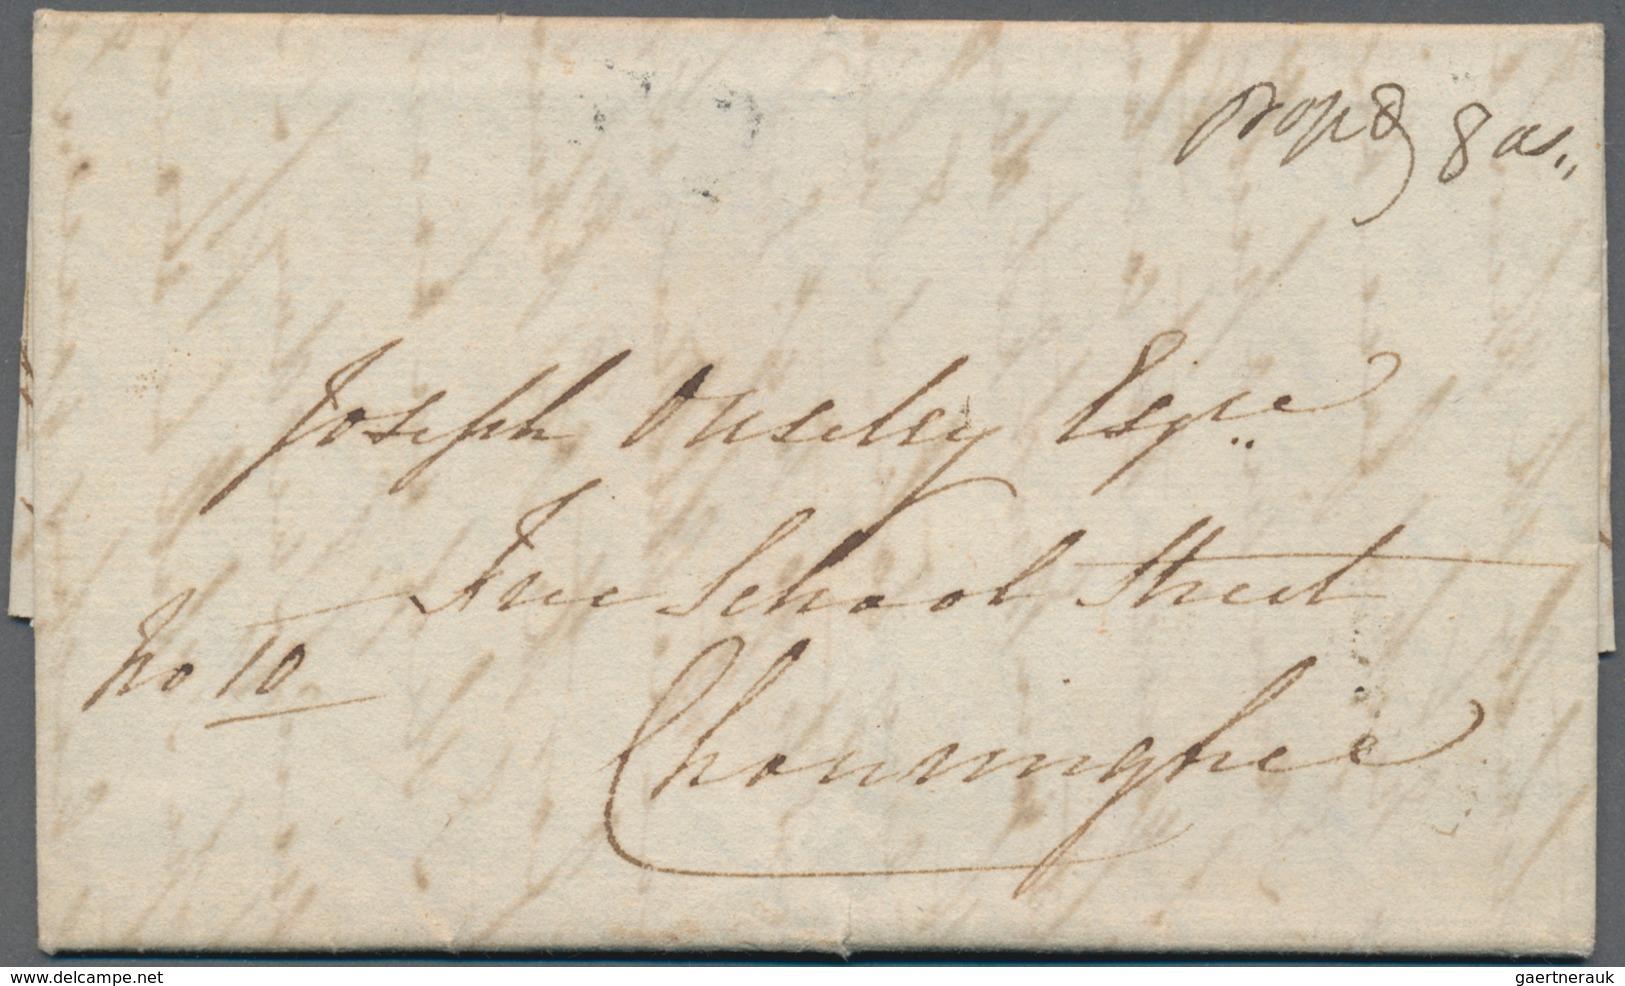 8 as,,
Joseph Ouseley Esqre
Free School Street
No 10
Chouringhee
delcampe.net
gaertnerauk